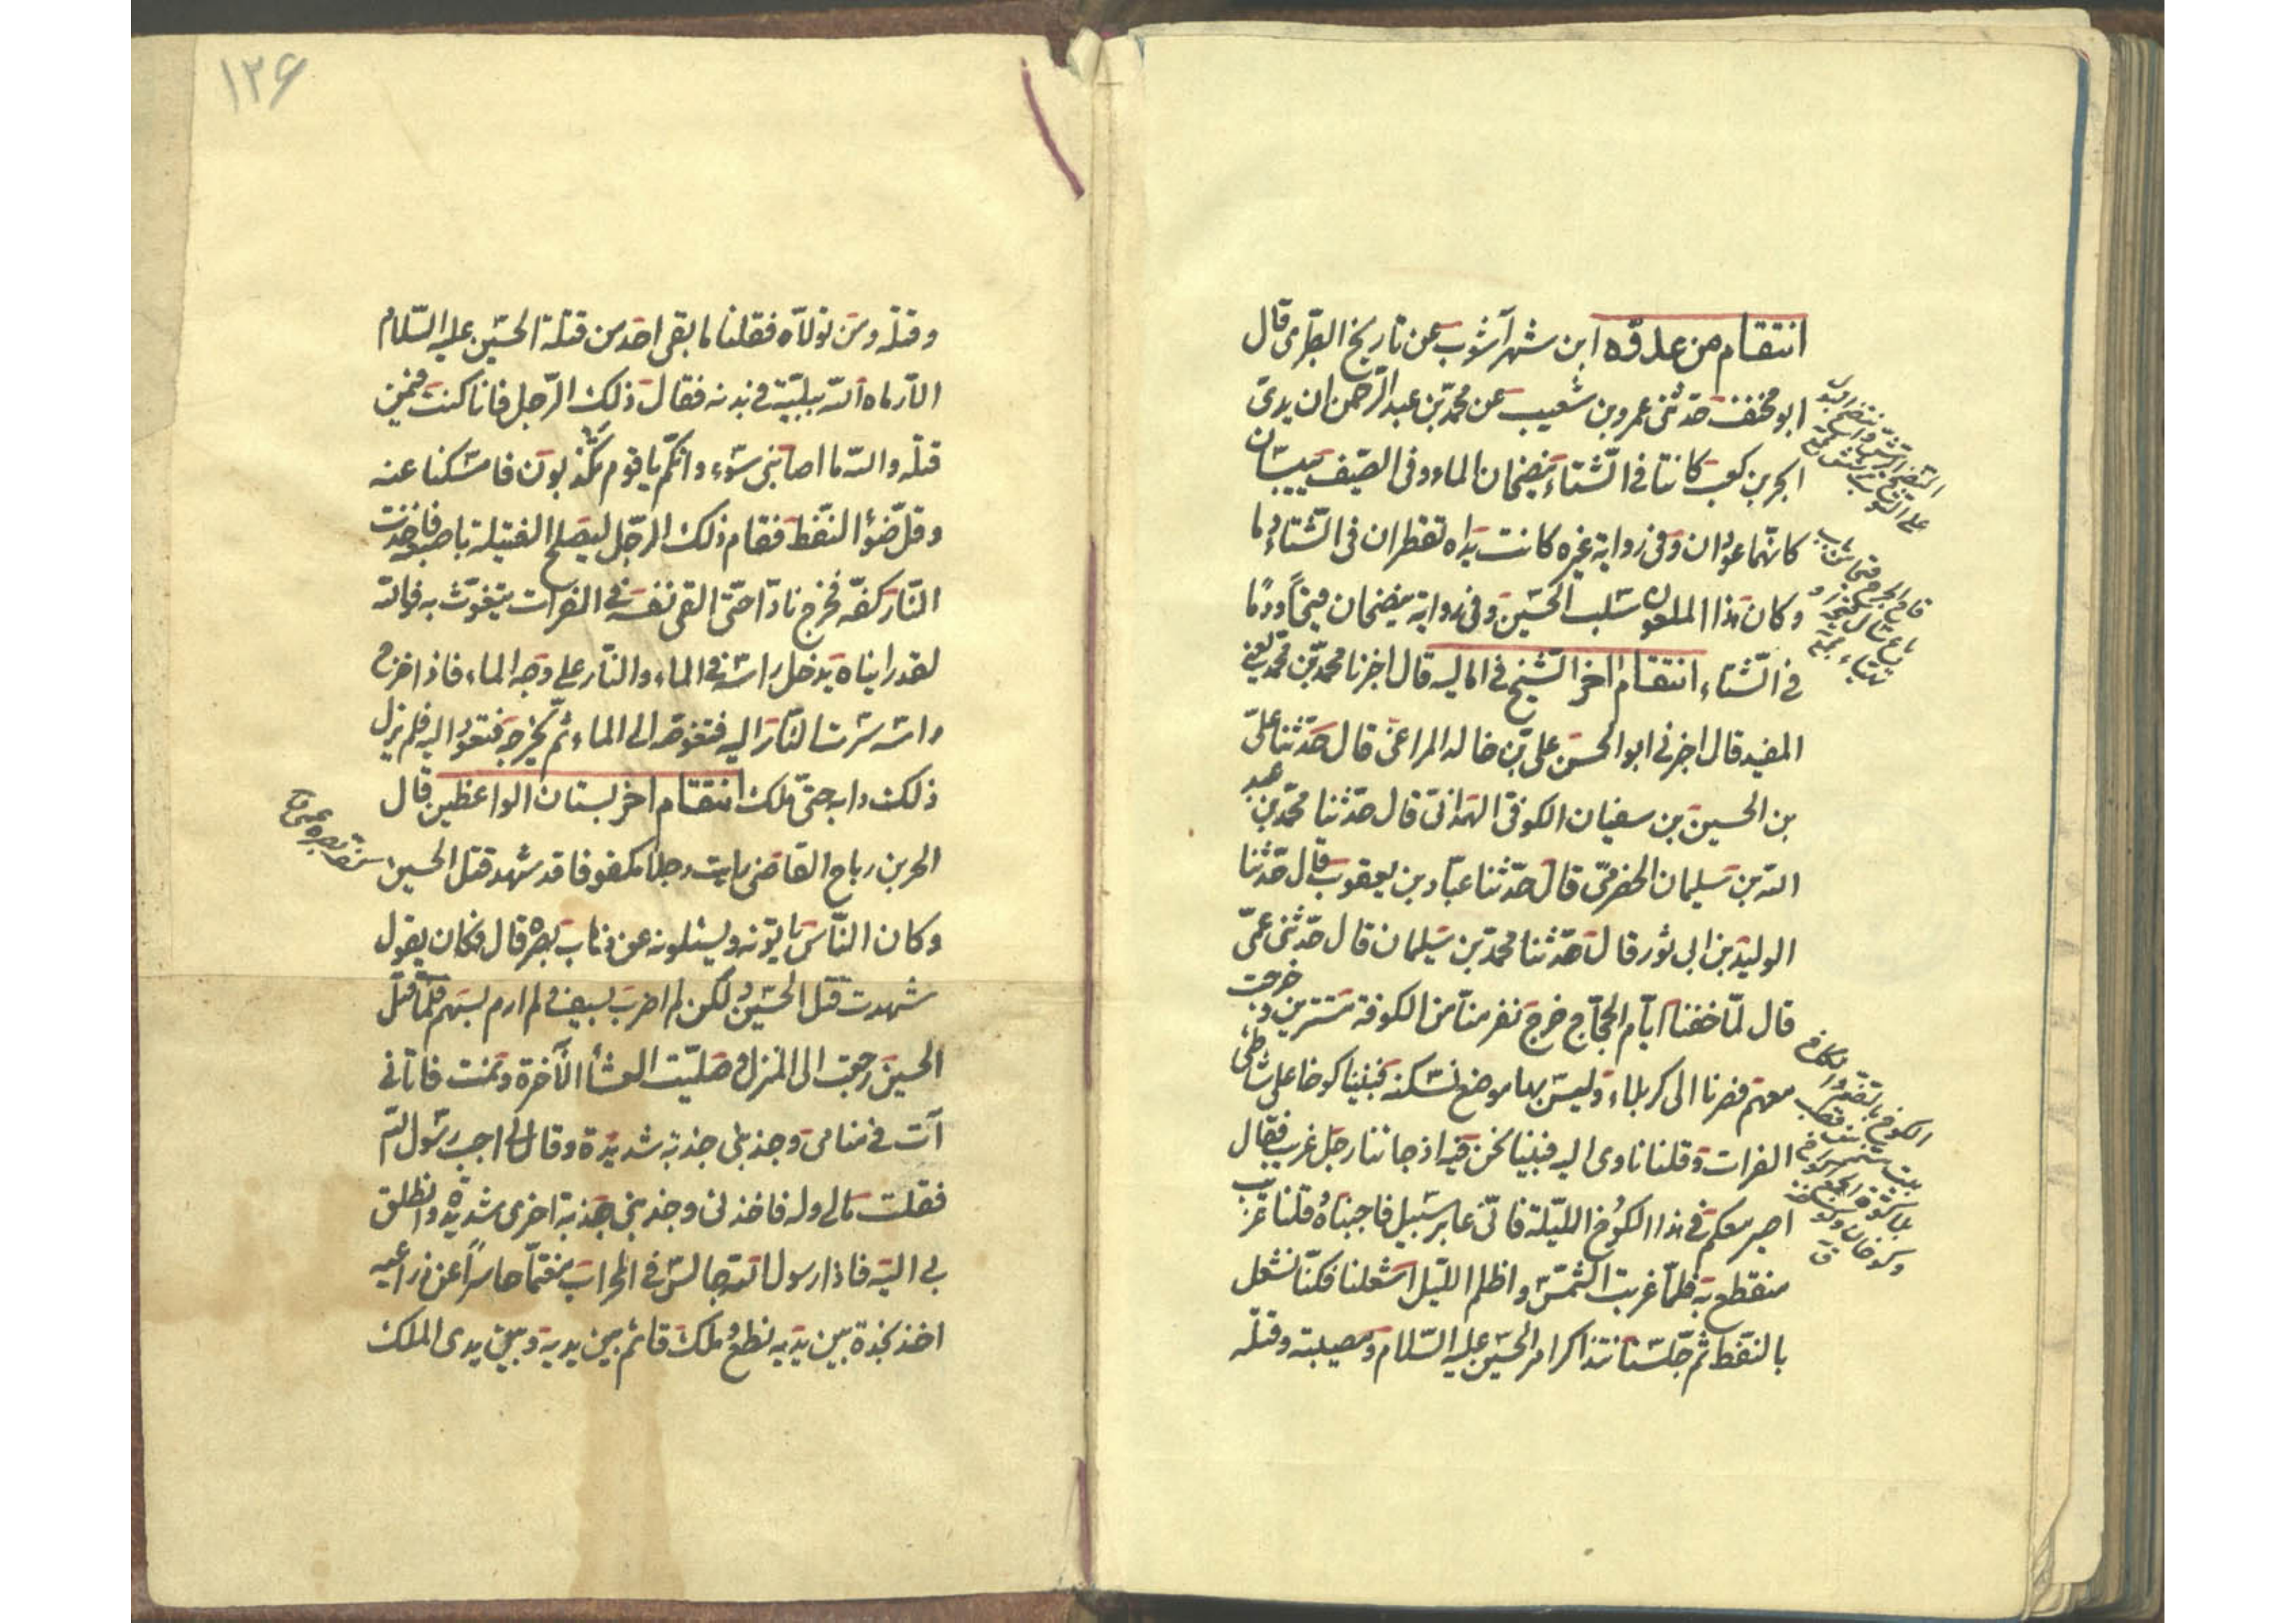 انتقام من عدوّه ابن شهرآشوب عن تاريخ الطبرى قال
ابو مخنف حدثنى عمرو بن شعيب عن محمّد بن عبد الرّحمن ان يدى
ابجر بن كعب كانتا فى الشّتاء ينضحان الماء و فى الصّيف ييبسان
كانّهما عودان و فى رواية غيره كانت يداه تقطران فى الشّتاء دما
و كان هذا الملعون سلب الحسين و فى رواية ينضحان قيحاً و دمًا
فى الشّتاء انتقام اخر الشّيخ فى اماليه قال اخبرنا محمّد بن محمّد يعنى
المفيد قال اخبرنى ابو الحسن على بن خالد المراغى قال حدّثنا علىّ
بن الحسين بن سفيان الكوفى الهمدانى قال حدّثنا محمّد بن عبد
الله بن سليمان الحضرمى قال حدّثنا عبّاد بن يعقوب قال حدّثنا
الوليد بن ابى ثور قال حدّثنا محمّد بن سليمان قال حدّثنى عمّى
قال لمّا خفنا ايّام الحجّاج خرج نفر منّا من الكوفة مستترين و خرجت
معهم فصرنا الى كربلاء و ليس بها موضع نسكنه فبنينا كوخا على شاطى
الفرات و قلنا ناوى اليه فبينا نحن فيه اذ جائنا رجل غريب فقال
اصير معكم فى هذا الكوخ الليّلة فانّى عابر سبيل فاجبناهُ و قلنا غريب
منقطع به فلمّا غربت الشّمس و اظلم اللّيل اشعلنا فكنّا نشعل
بالنّفط ثم جلسنا نتذاكر امر الحسين عليه السّلام و مصيبته و قتله
النضح الرش
على الثوب
الكوخ بالضم
١٢۶
و قتله و من تولاّه فقلنا ما بقى احد من قتلة الحسين عليه السّلام
الاّ رماه الله ببليّة فى بدنه فقال ذلك الرّجل فانا كنت فيمن
قتله و الله ما اصابنى سوء و انكّم يا قوم تكذبون فامسكنا عنه
و قلّ ضوْ النّفط فقام ذلك الرّجل ليصلح الفتيلة باصبعه فاخذت
النّار كفّه فخرج نادّا حتّى القى نفسه فى الفرات يتغوّث به فو الله
لقد رايناه يدخل راسه فى الماء و النّار على وجه الماء فاذا اخرج
راسه سرت النّار اليه فتغوصه الى الماء ثم يخرجه فتعود اليه فلم يزل
ذلك دابه حتّى هلك انتقام اخر بستان الواعظين قال
الحر بن رباح القاضى رايت رجلا مكفوفا قد شهد قتل الحسين
و كان النّاس ياتونه و يسئلونه عن ذهاب بصره قال فكان يقول
شهدت قتل الحسين و لكن لم اضرب بسيف و لم ارم بسهم فلمّا قتل
الحسين رجعت الى المنزل و صلّيت العشأ الآخرة و نمت فاتانى
آت فى منامى و جذبنى جذبة شديدة و قال لى اجب رسول الله
فقلت مالى و له فاخذنى و جذبنى جذبة اخرى شديدة و انطلق
بى اليه فاذا رسول الله جالس فى المحراب مغتمّا حاسراً عن ذراعيه
اخذ بخدة بين يديه نطع و ملك قائم بين يديه و بين يدى الملك